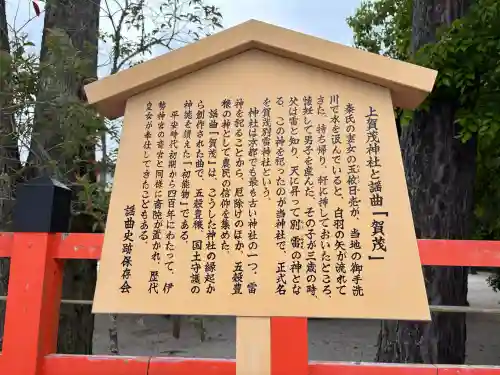 上賀茂神社と謡曲「賀茂」
秦氏の妻の玉依日売が、当地の御手洗
川で水を汲んでいると、白羽の矢が流れて
きた。持ち帰り、軒に挿しておいたところ、
懐妊して男子を産んだ。その子が三歳の時、
父は雷と知り、天に昇って別雷の神とな
る。この神を祀ったのが当神社で、正式名
を賀茂別雷神社という。
神社は京都でも最も古い神社の一つ、雷
神を祀ることから、厄除けのほか、五穀豊
穣の神として農民の信仰を集めた。
謡曲「賀茂」は、こうした神社の縁起か
ら創作された曲で、五穀豊穣、国土守護の
神徳を讃えた「初能物」である。
平安時代初期から四百年にわたって、伊
勢神宮の斎宮と同様に斎院が置かれ、歴代
皇女が奉仕してきたこともある。
謡曲史跡保存会